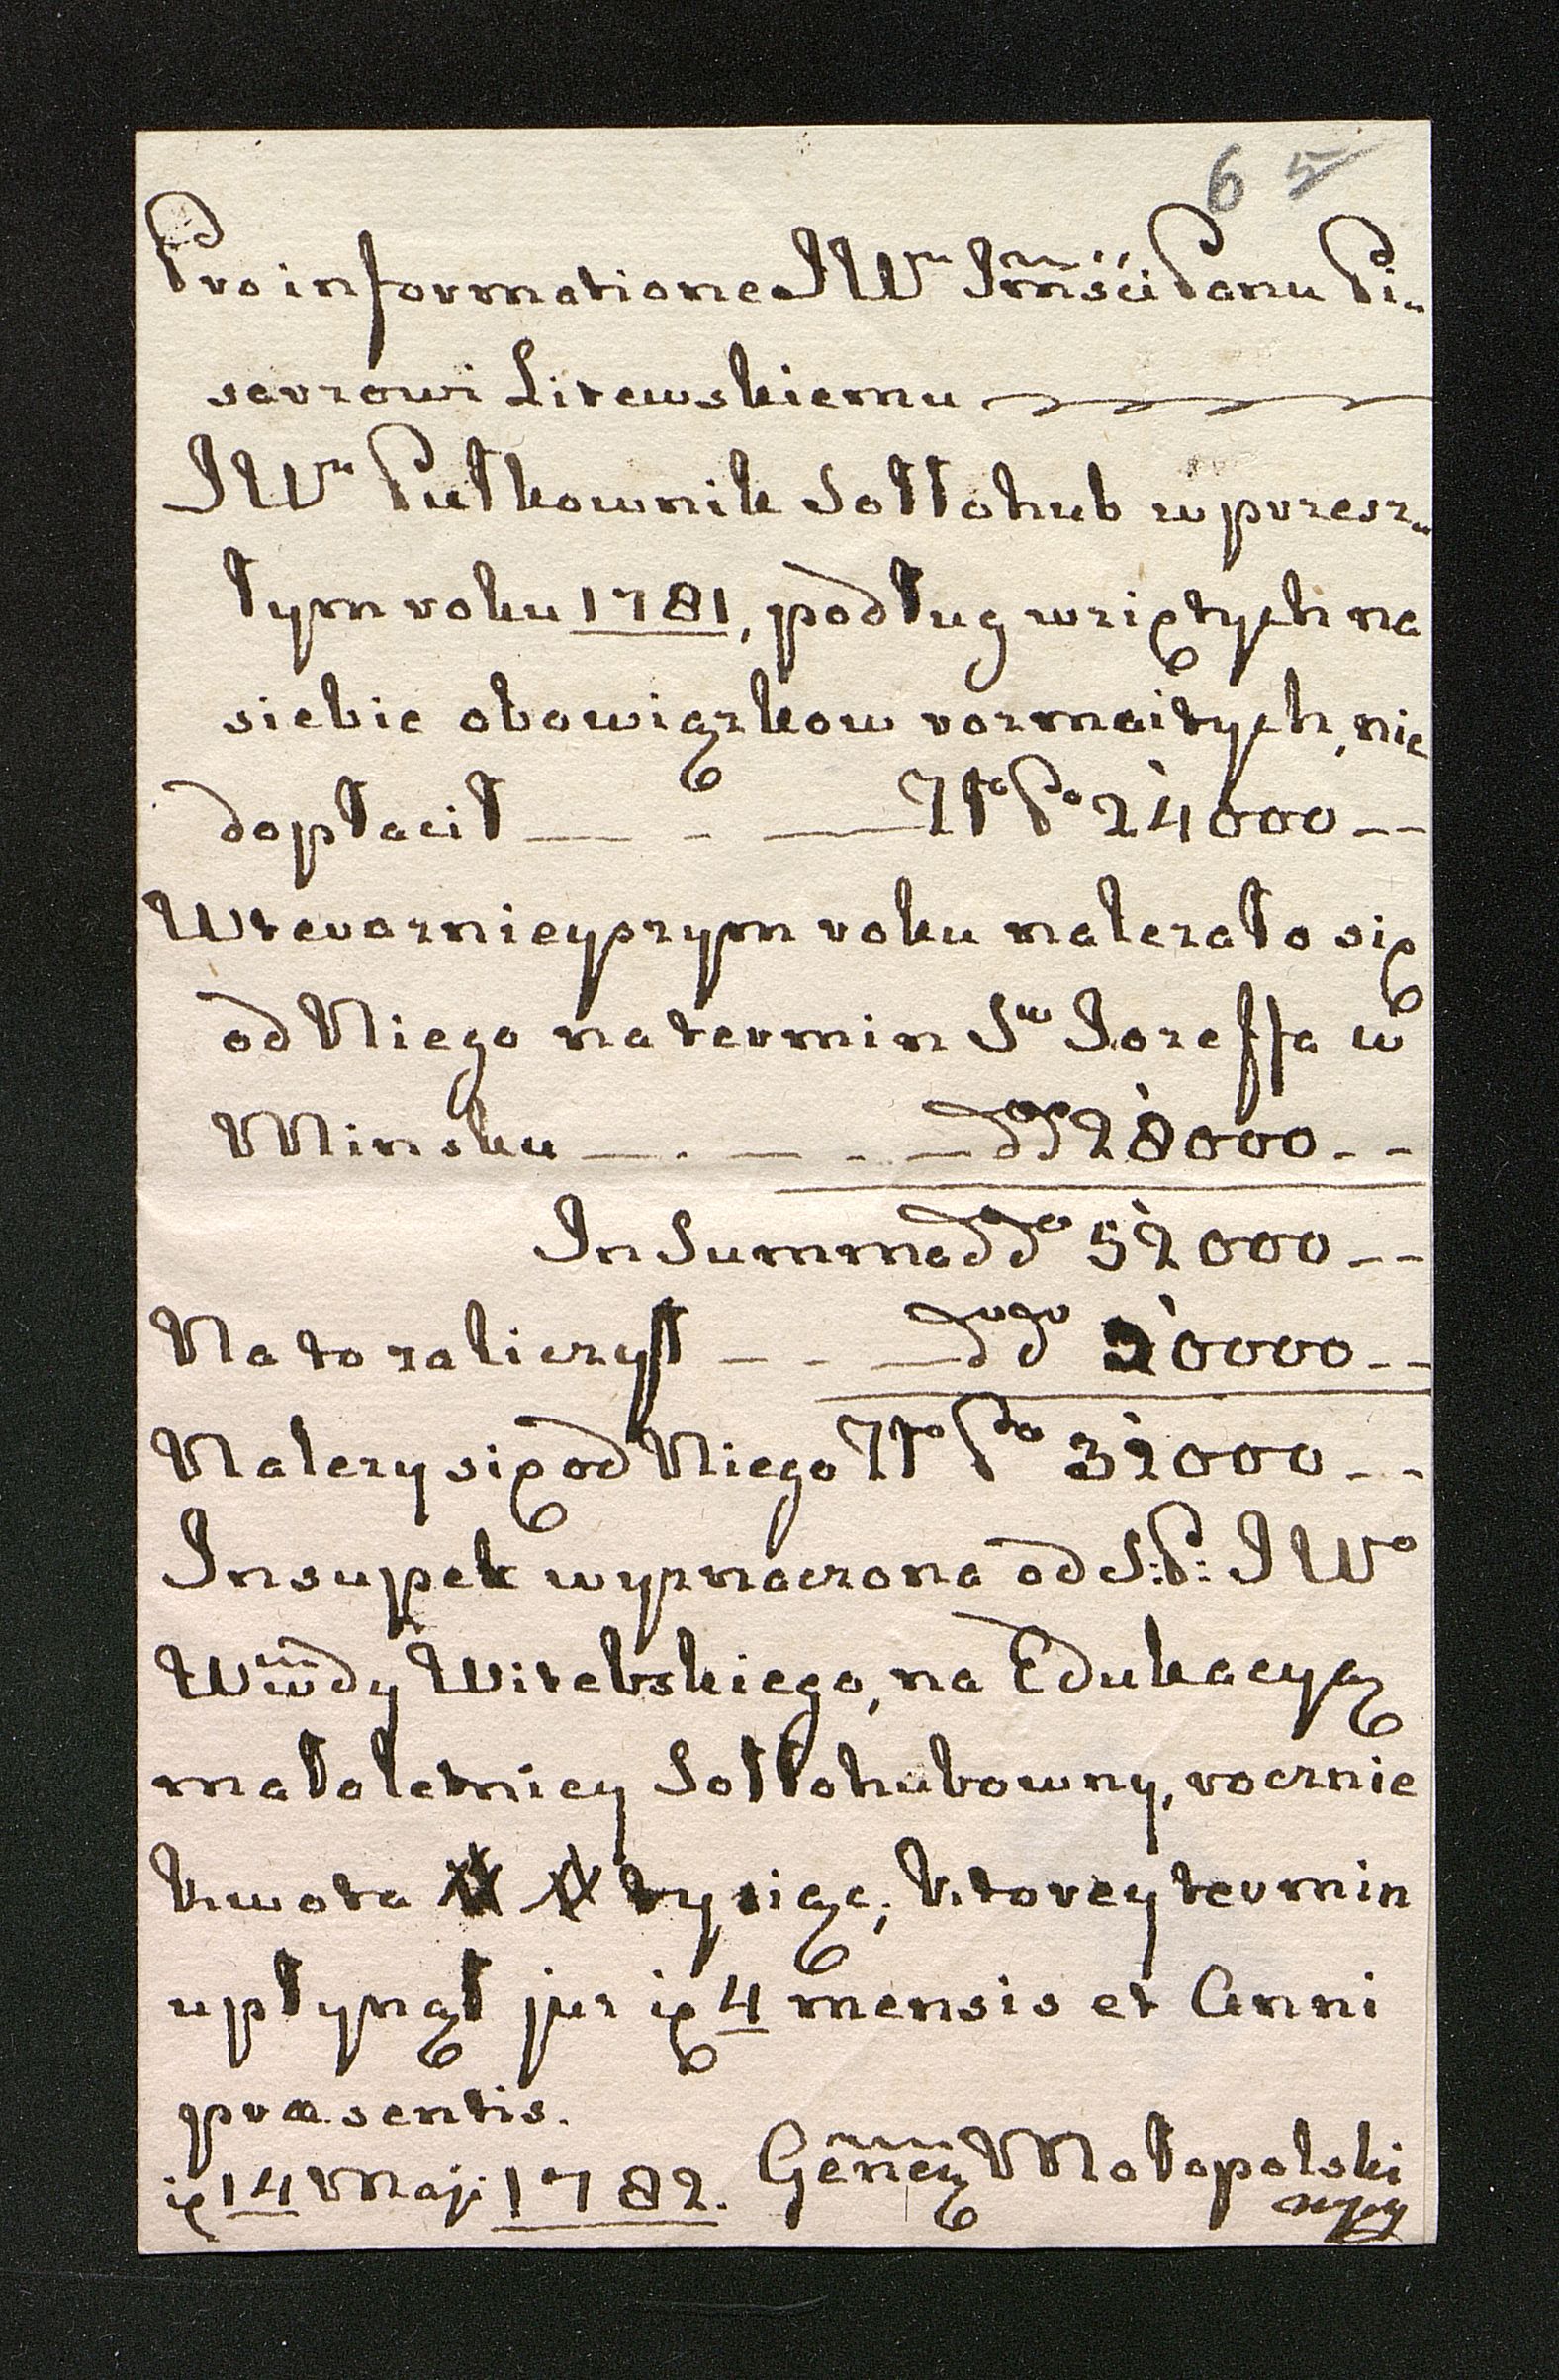 6 5
Pro informatione JWᵘ Jm̃ści Panu Pi-
sarzowi Litewskiemu
JWⁿ Pułkownik Sołłohub w przesz-
łym roku 1781, podług wziętych na
siebie obowiązkow rozmaitych, nie
dopłacił — - — Złᵒ Pᵒ 24000 --
W teraznieyszym roku należało się
od Niego na termin Sᵒ Jozeffa w
Minsku — . — - . — dᵒ dᵒ 28000 --
In Summa dᵒ dᵒ 52000 --
Na to zaliczył — - — dᵒ dᵒ 20000 --
Należy się od Niego Złᵒ Pᵒ 32000 --
Insuper wyznaczona od S: P: J Wᵒ
Wwdy Witebskiego, na Edukacyą
małoletniey Sołłohubowny, rocznie
kwota tysiąc, ktorey termin
upłynął już ię 4 mensis et Anni
præsentis.
ię 14 Maji 1782. Małopolski